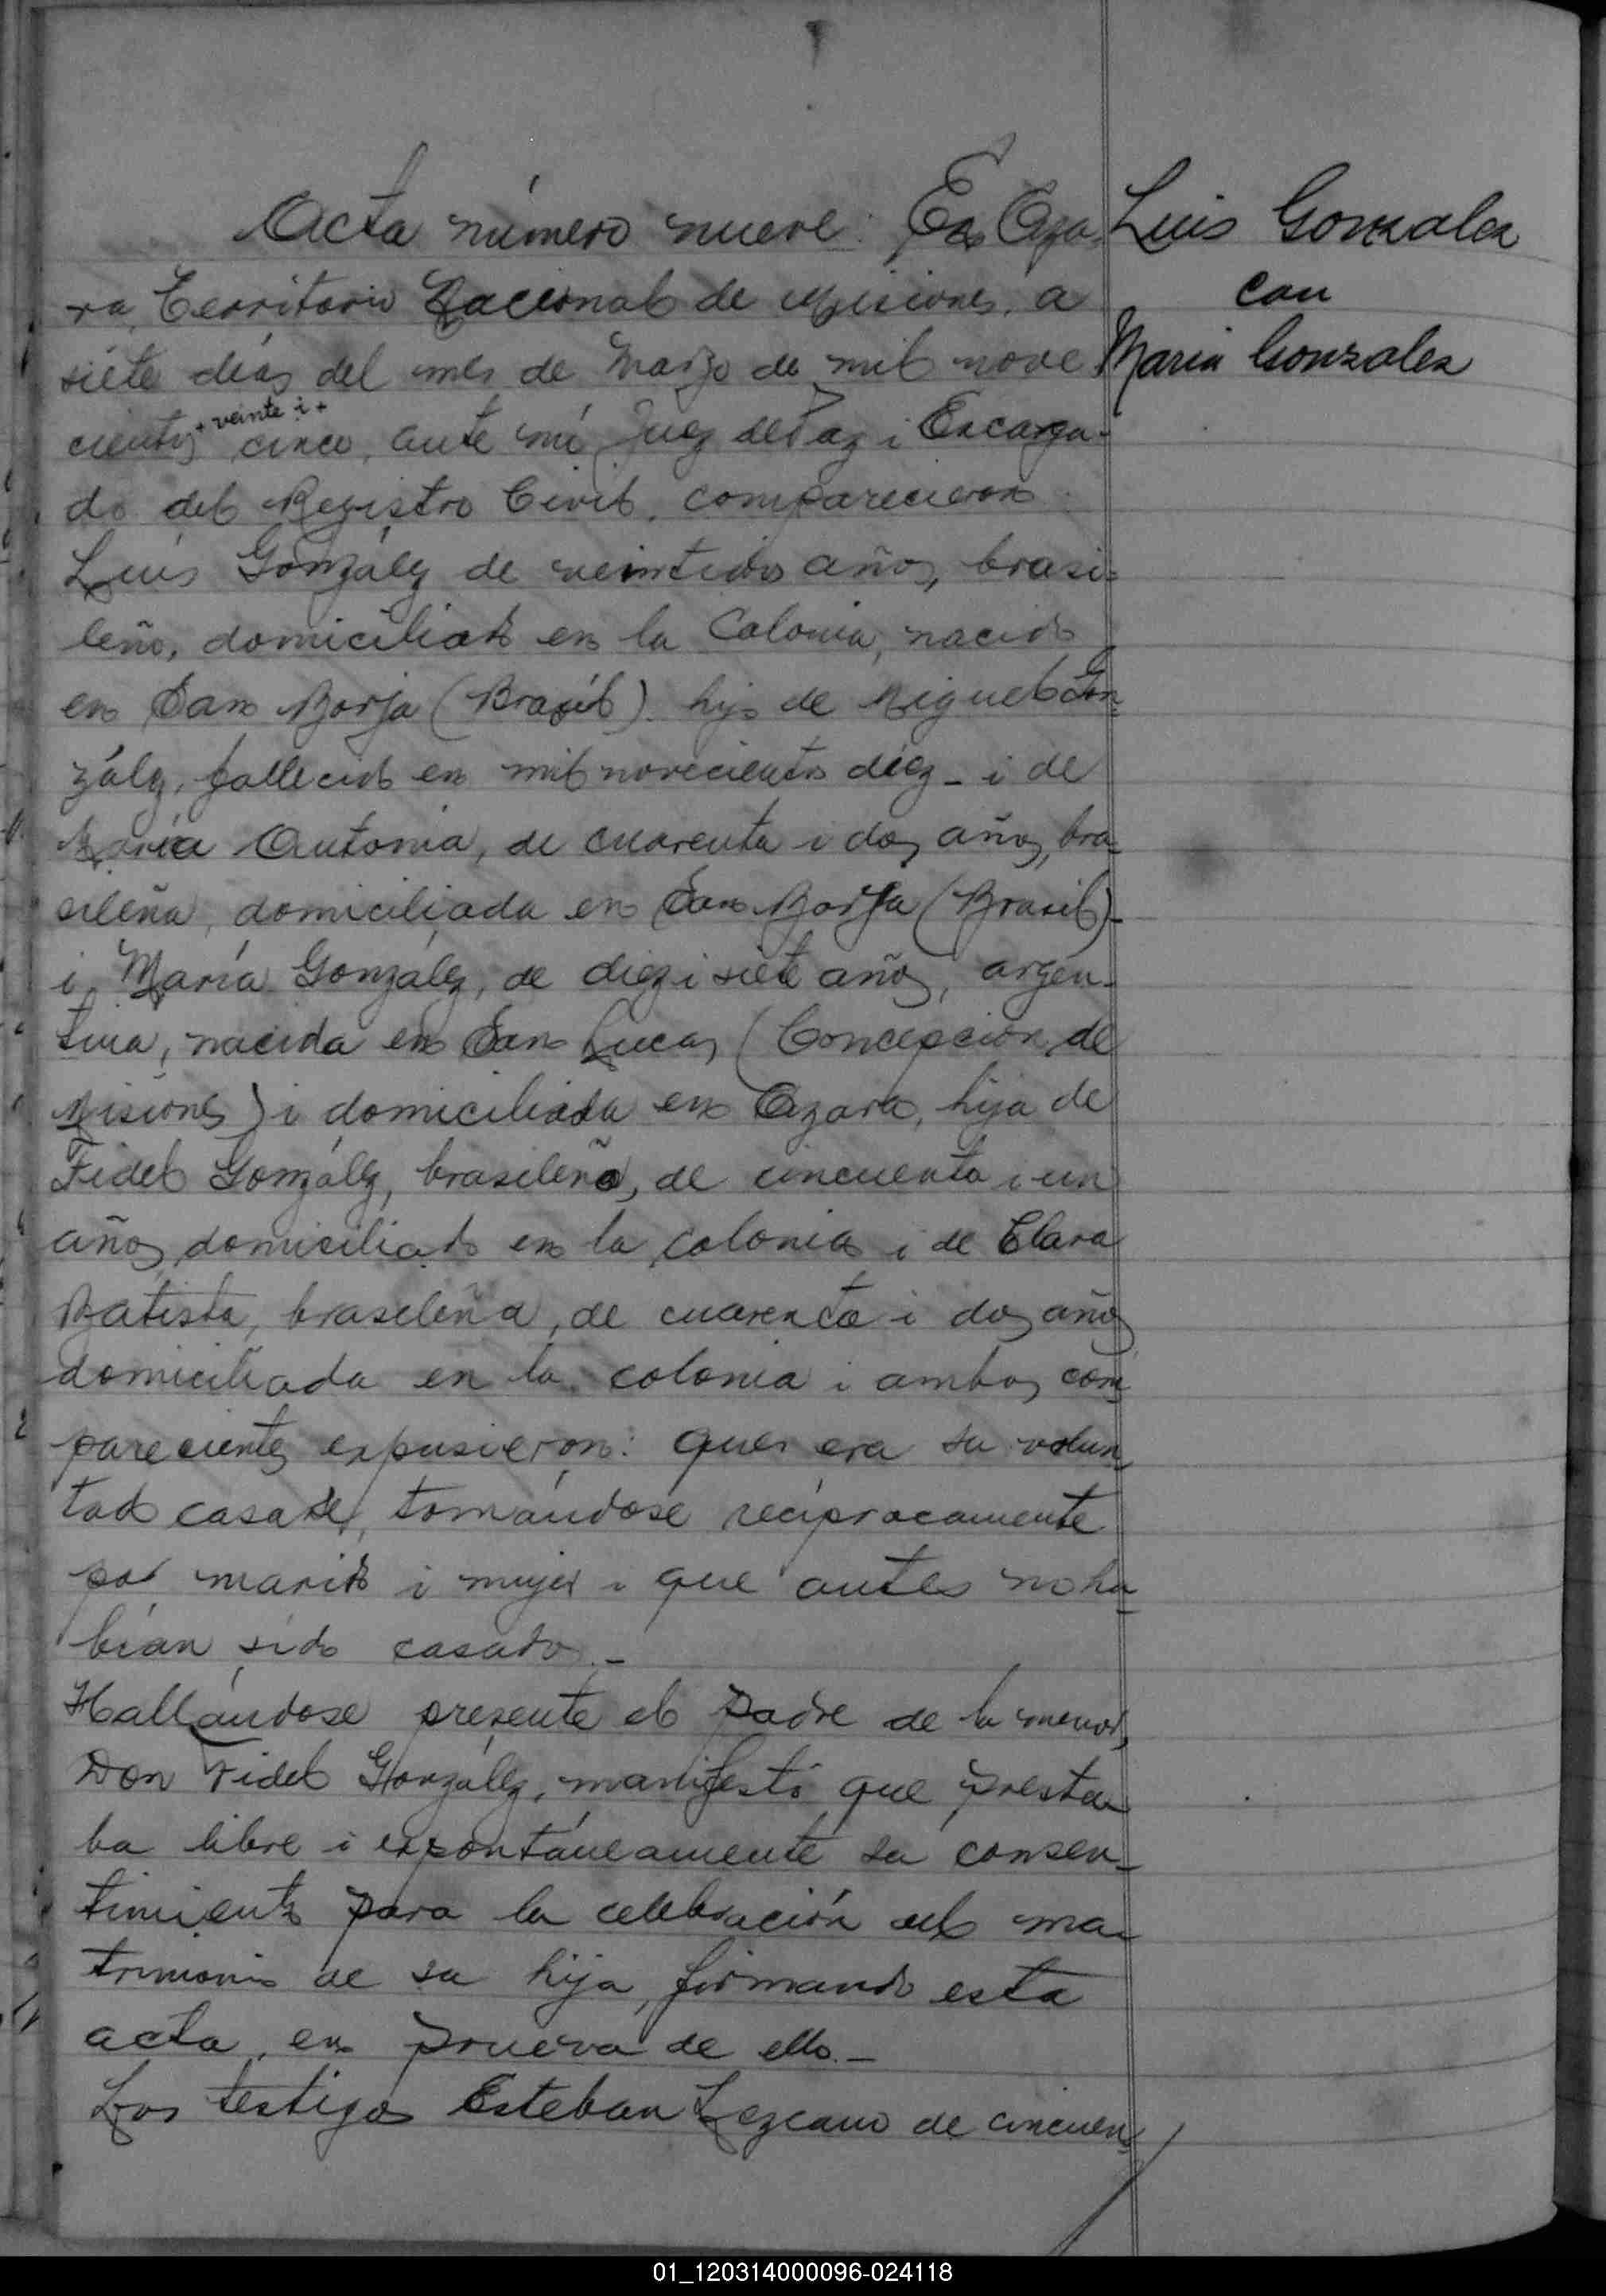 Acta número nueve: En Aza-
ra, Territorio Nacional de Misiones, a
siete días del mes de Marzo de mil nove
cientos + veinte i + cinco, ante mí Juez de Paz i Encarga-
do del Registro Civil, comparecieron
Luis González de veintidos años, brasi-
leño, domiciliado en la Colonia, nacido
en San Borja (Brasil) hijo de Miguel Gon-
zález, fallecido en mil novecientos diez - i de
María Antonia, de cuarenta i dos años, bra-
sileña, domiciliada en San Borja (Brasil) -
i María González, de diez i siete años, argen-
tina, nacida en San Lucas (Concepción de
Misiones) i domiciliada en Azara, hija de
Fidel González, brasileño, de cincuenta i un
años, domiciliado en la colonia i de Clara
Batista, brasileña, de cuarenta i dos años
domiciliada en la colonia i ambos com-
parecientes expusieron: que era su volun-
tad casarse, tomándose recíprocamente
por marido i mujer i que antes no ha-
bían sido casados.-
Hallándose presente el padre de la menor,
Don Fidel González, manifestó que presta-
ba libre i expontáneamente su consen-
timiento para la celebración del ma-
trimonio de su hija, firmando esta
acta, en prueva de ello.-
Los testigos Esteban Lezcano de cincuen-
Luis Gonzalez
con
Maria Gonzalez
01_120314000096-024118